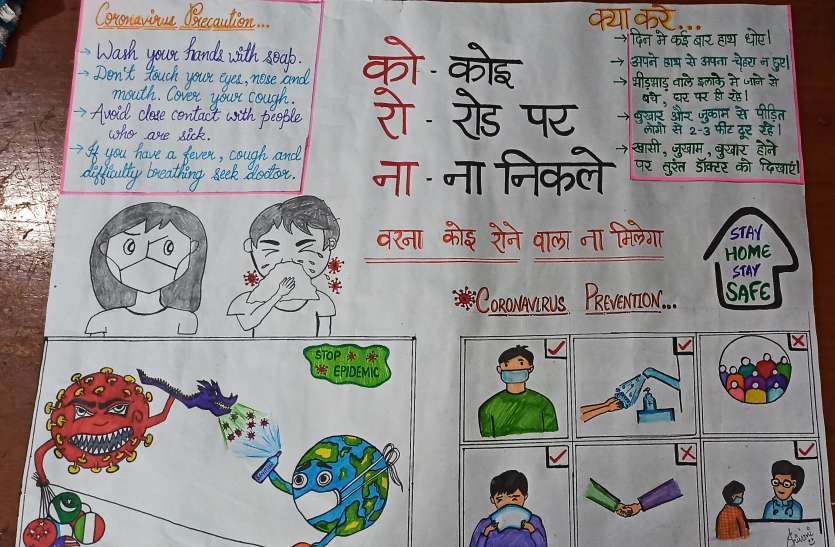 Coronavirus Precaution...
→ Wash your hands with soap.
→ Don't touch your eyes, nose and
mouth. Cover your cough.
→ Avoid close contact with people
who are sick.
→ If you have a fever, cough and
difficulty breathing seek doctor.
को - कोइ
रो - रोड पर
ना - ना निकले
वरना कोइ रोने वाला ना मिलेगा
क्या करें...
→ दिन में कई बार हाथ धोए।
→ अपने हाथ से अपना चेहरा न छुए।
→ भीड़भाड़ वाले इलाके में जाने से
बचे, घर पर ही रहें।
→ बुखार और जुकाम से पीड़ित
लोगो से 2-3 फीट दूर रहें।
→ खासी, जुखाम, बुखार होने
पर तुरंत डॉक्टर को दिखाएं।
STAY
HOME
STAY
SAFE
CORONAVIRUS PREVENTION...
STOP
EPIDEMIC